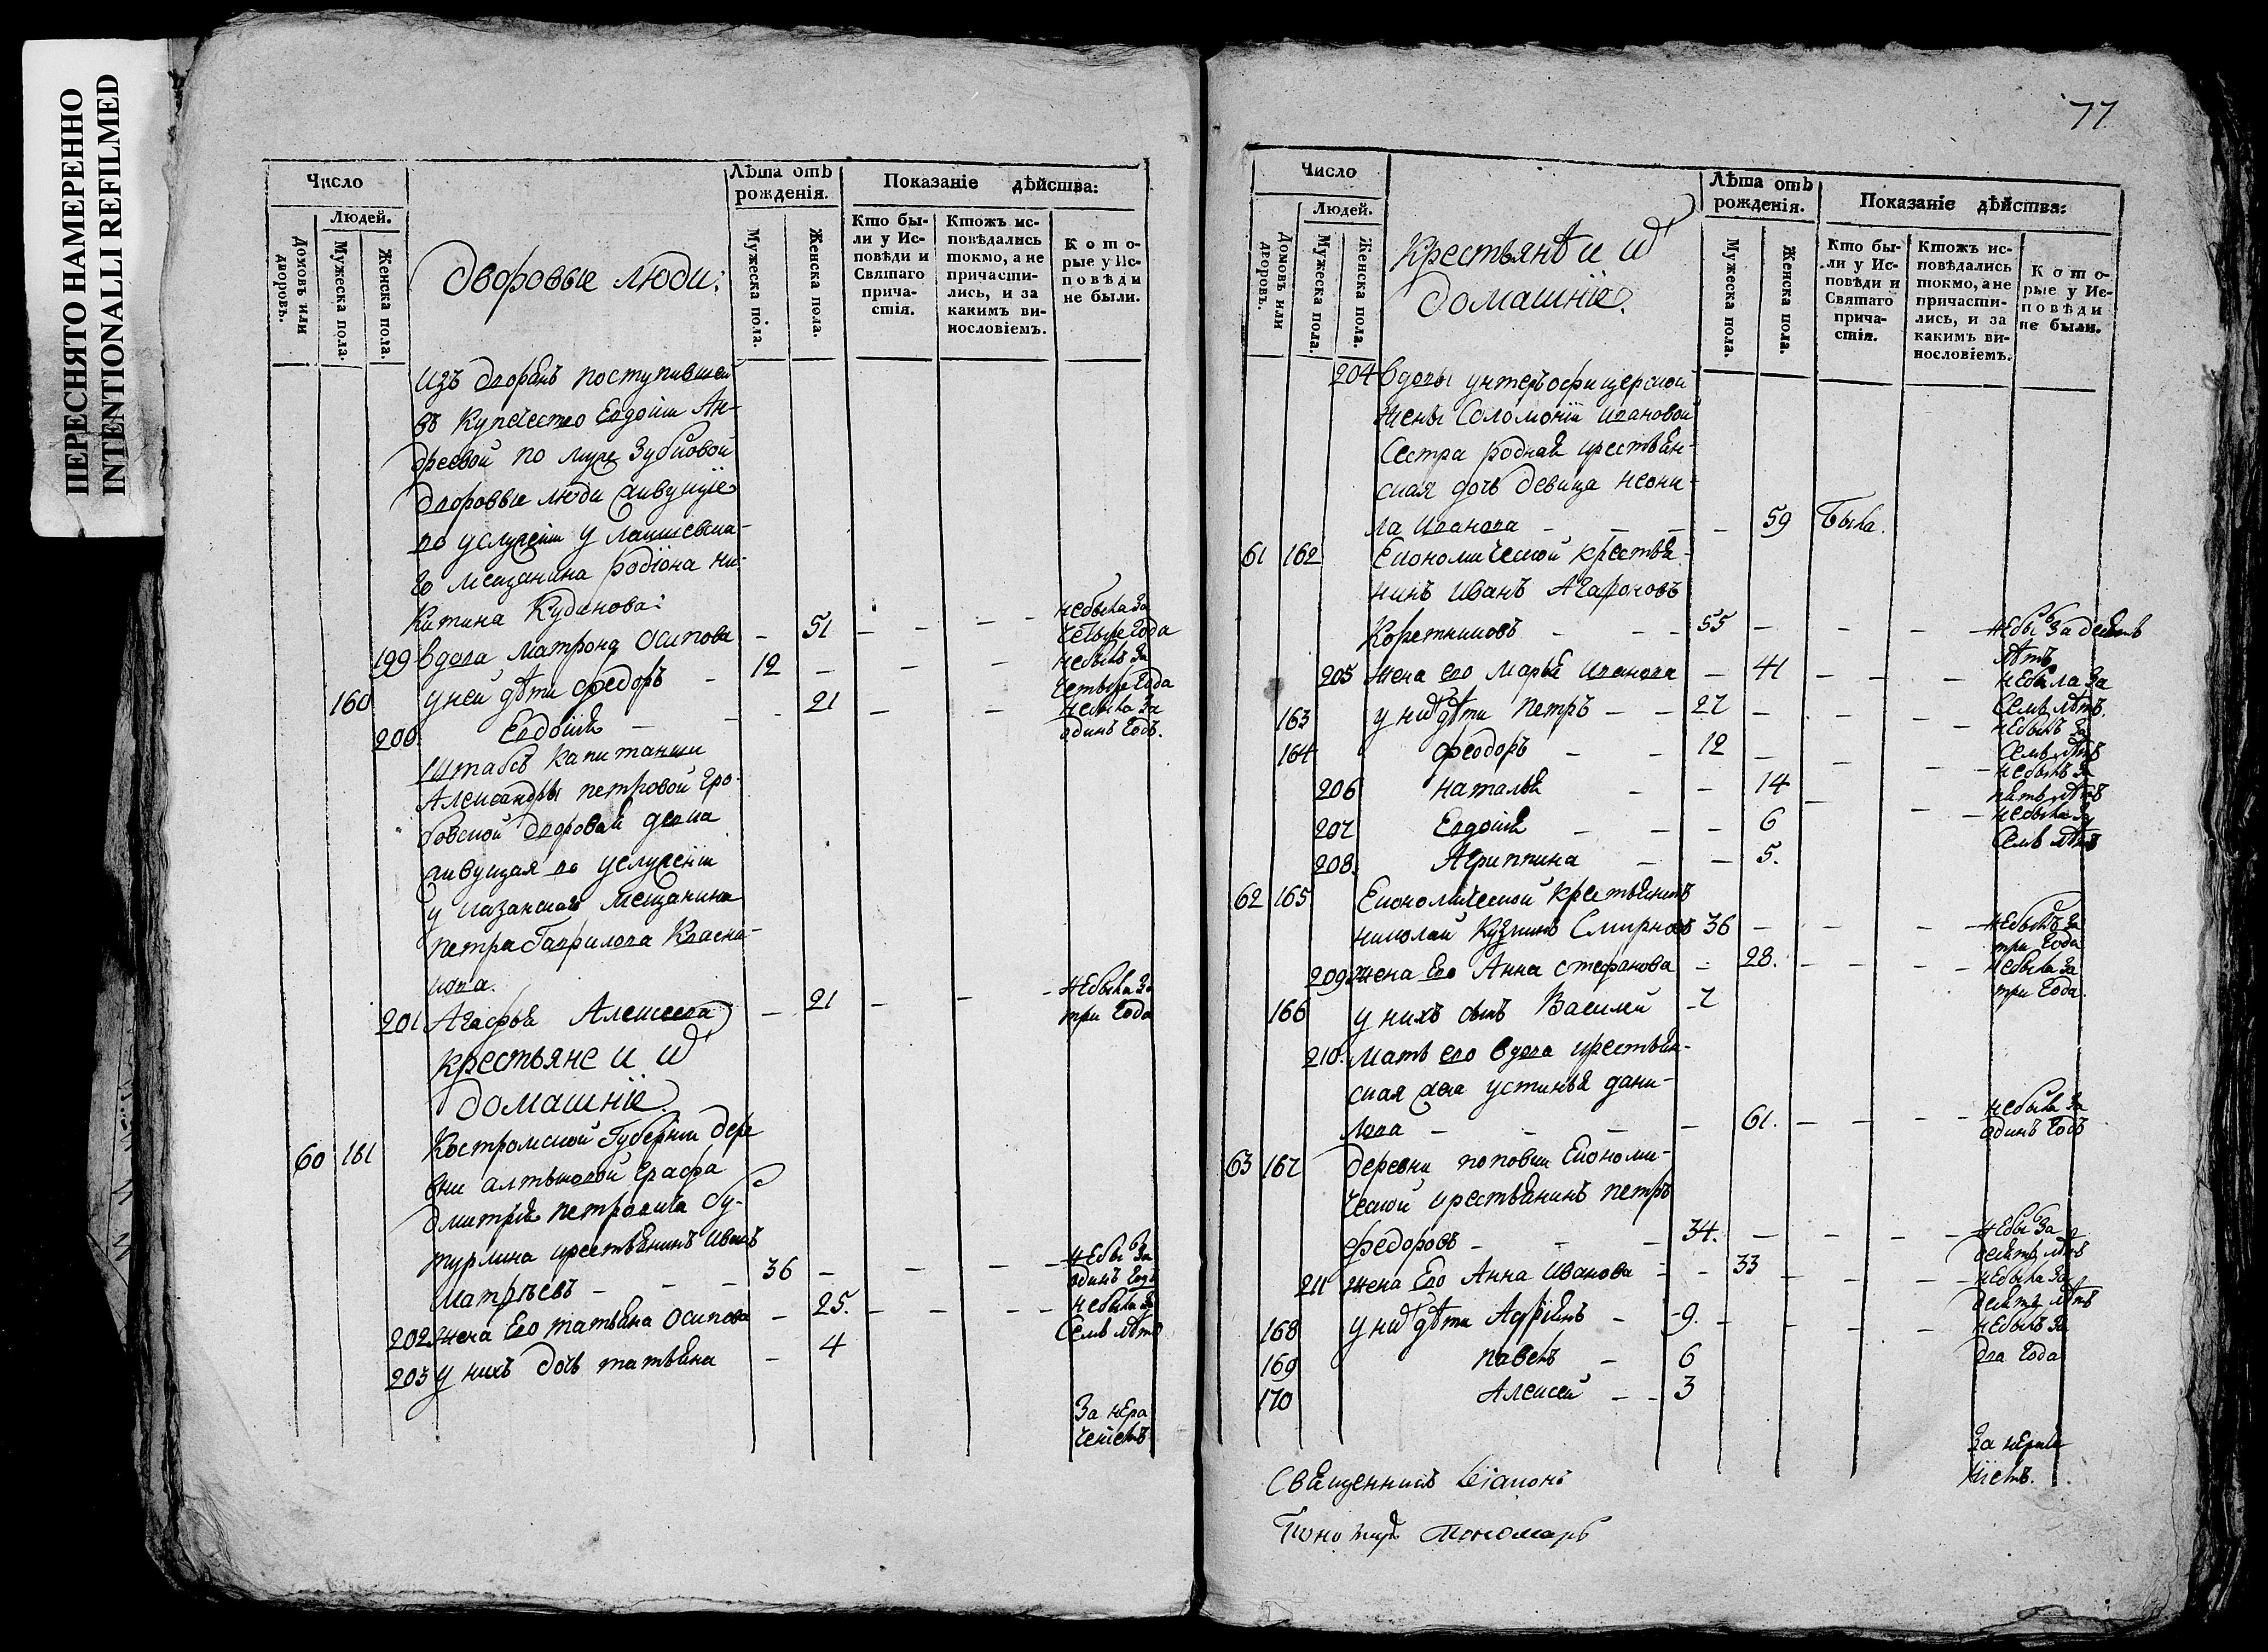 ПЕРЕСНЯТО НАМЕРЕННО
INTENTIONALLI REFILMED
Число
Людей.
Домовъ или дворовъ.
Мужеска пола.
Женска пола.
Дворовые люди:
Лѣта отъ рожденія.
Мужеска пола.
Женска пола.
Показаніе дѣйства:
Кто бы-
ли у Ис-
повѣди и
Святаго
прича-
стія.
Ктожъ ис-
повѣдались
токмо, а не
причасти-
лись, и за
какимъ ви-
нословіемъ.
Кото-
рые у Ис-
повѣди
не были.
изъ дворянъ поступившей
въ купечество Евдокіи Ан-
дреевой по муже Зубковой
дворовые люди живущіе
по услуженіи у лаишевска-
го мещанина Родіона Ни-
китина Кудинова:
199 вдова Матрона Осипова - 51 - - - небыла за
четыре года
160 у ней дѣти Федоръ - 12 - - - небылъ за
четыре года
200 Евдокія - - 21 - - небыла за
одинъ годъ.
Штабсъ капитанши
Александры Петровой Гро-
бовской дворовая девка
живущая по услуженіи
у казанскаго мещанина
Петра Гаврилова Квасни-
кова.
201 Агафья Алексеева - 21 - - - небыла за
три года
крестьяне и ихъ
домашніе.
60 161 Костромской Губерніи дере
вни алтыновой Графа
Дмитрія Петровича Бу-
турлина крестьянинъ Иванъ
Матвѣевъ - - - 36 - - - - небы за
одинъ годъ
202 жена Его татьяна Осипова - 25. - - - - небыла за
семь лѣтъ
203 у нихъ дочь татьяна - 4
За нера
ченіемъ
77
Число
Людей.
Домовъ или дворовъ.
Мужеска пола.
Женска пола.
крестьянѣ и ихъ
домашніе.
Лѣта отъ рожденія.
Мужеска пола.
Женска пола.
Показаніе дѣйства:
Кто бы-
ли у Ис-
повѣди и
Святаго
прича-
стія.
Ктожъ ис-
повѣдались
токмо, а не
причасти-
лись, и за
какимъ ви-
нословіемъ.
Кото-
рые у Ис-
повѣди
не были.
204 вдовы унтеръ офицерской
жены Соломоніи Ивановой
Сестра родная крестьян-
ская дочь девица неони-
ла Иванова - - - - 59 Была.
61 162 Економической крестья-
нинъ Иванъ Агафоновъ
Коретниковъ - - - 55 - - - - небы за девять
лѣтъ
205 жена его Марья Иванова - 41 - - - небыла за
семь лѣтъ.
163 у нихъ дѣти Петръ - - 27 - - - - небылъ за
семь лѣтъ
164 феодоръ - - 12 - - - - небылъ за
пять лѣтъ
206 наталья - - 14 - - - небыла за
семь лѣтъ
207 Евдокія - - - 6
208. Агриппина - - 5.
62 165 Економической крестьянинъ
николай Кузминъ Смирновъ 36 - - - - небылъ за
три года
209 жена Его Анна стефанова - 28. - - - - небыла за
три года.
166 у нихъ сынъ Василий - 7
210. мать его вдова крестьян-
ская жена устинья дани-
лова - - - - 61. - - - - небыла за
одинъ годъ
63 167 деревни поповки Економи-
ческой крестьянинъ петръ
федоровъ - - - 34. - - - - небы за
десять лѣтъ
211 жена Его Анна Иванова - - 33 - - - - небыла за
десять лѣтъ
168 у нихъ дѣти Адріянъ - - 9. - - - - небылъ за
два года
169 павелъ - 6
170 Алексей - - 3
За нераче
ніемъ.
Священникъ
пономарь